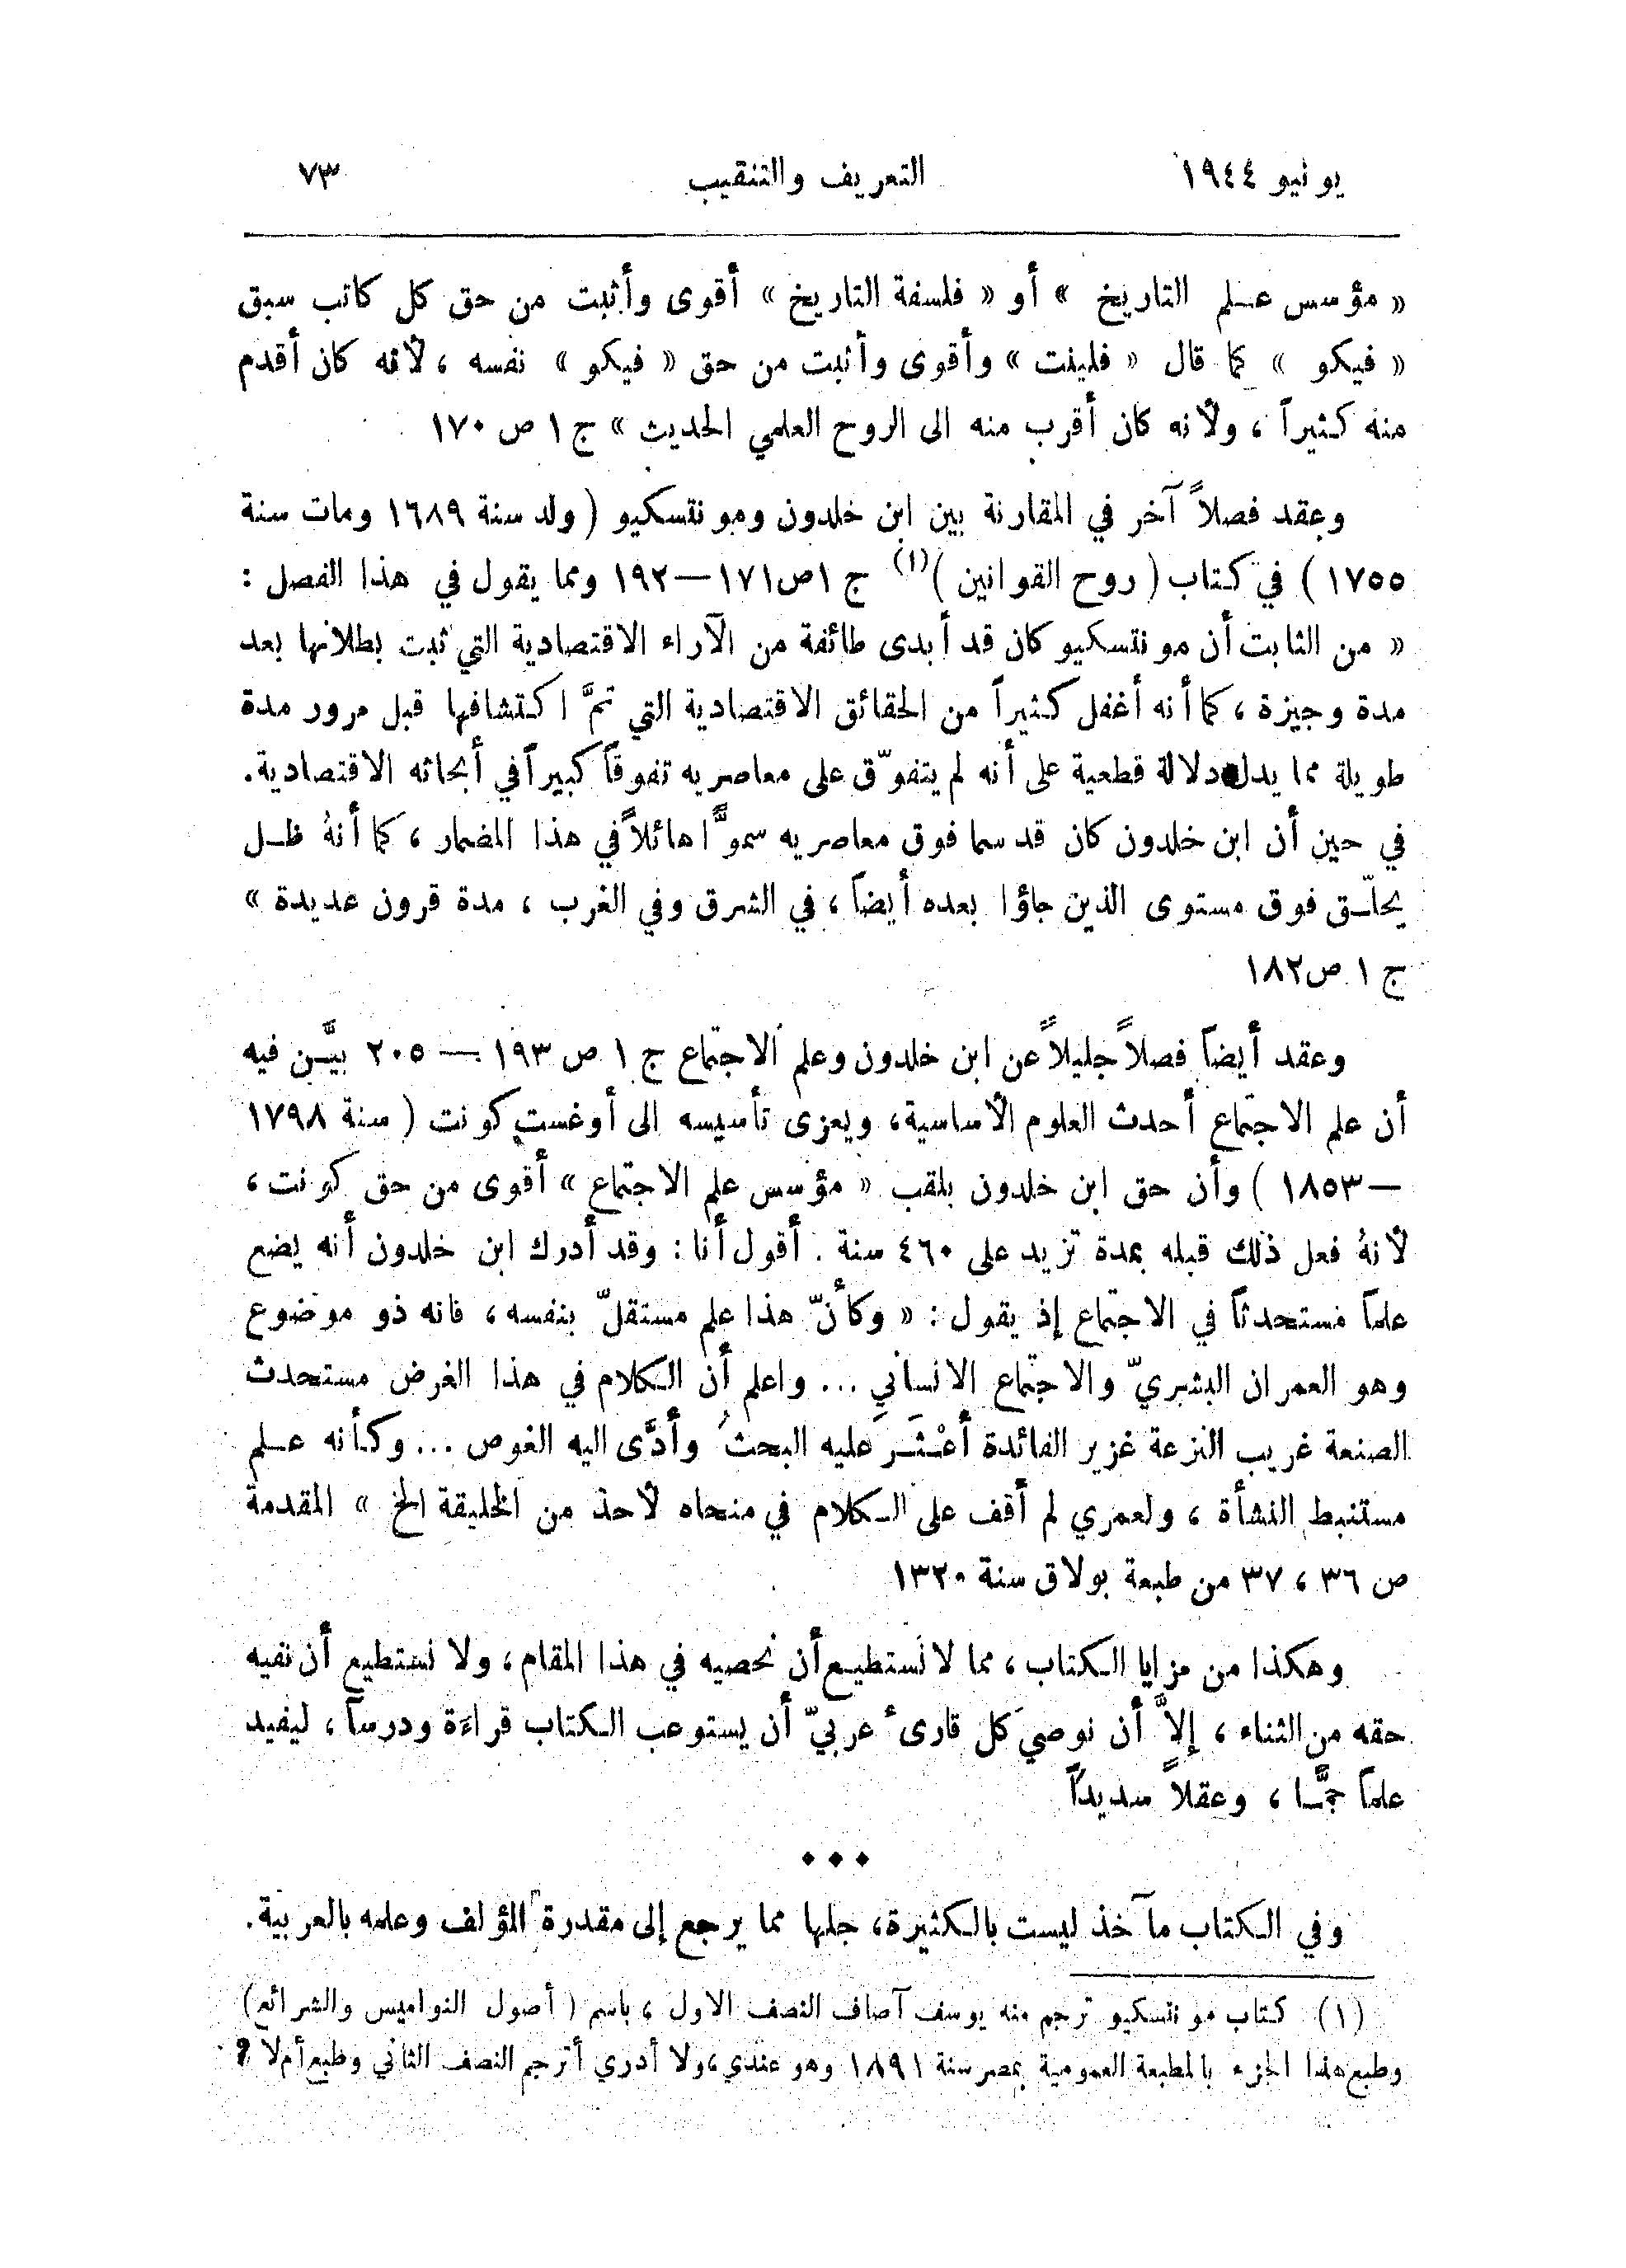 يونيو ١٩٤٤ التعريف والتنقيب ٧٣
« مؤسس علم التاريخ » أو « فلسفة التاريخ » أقوى وأثبت من حق كل كاتب سبق
« فيكو » كما قال « فلينت » وأقوى وأثبت من حق « فيكو » نفسه ، لأنه كان أقدم
منه كثيراً ، ولأنه كان أقرب منه الى الروح العلمي الحديث » ج ١ ص ١٧٠
وعقد فصلاً آخر في المقارنة بين ابن خلدون ومونتسكيو ( ولد سنة ١٦٨٩ ومات سنة
١٧٥٥ ) في كتاب ( روح القوانين )(١) ج ١ص ١٧١—١٩٢ ومما يقول في هذا الفصل :
« من الثابت أن مونتسكيو كان قد أبدى طائفة من الآراء الاقتصادية التي ثبت بطلانها بعد
مدة وجيزة ، كما أنه أغفل كثيراً من الحقائق الاقتصادية التي تمَّ اكتشافها قبل مرور مدة
طويلة مما يدل دلالة قطعية على أنه لم يتفوّق على معاصريه تفوقاً كبيراً في أبحاثه الاقتصادية .
في حين أن ابن خلدون كان قد سما فوق معاصريه سموًّا هائلاً في هذا المضمار ، كما أنهُ ظل
يحلّق فوق مستوى الذين جاؤا بعده أيضاً ، في الشرق وفي الغرب ، مدة قرون عديدة »
ج ١ ص ١٨٢
وعقد أيضاً فصلاً جليلاً عن ابن خلدون وعلم الاجتماع ج ١ ص ١٩٣ — ٢٠٥ بيَّن فيه
أن علم الاجتماع أحدث العلوم الأساسية ، ويعزى تأسيسه الى أوغست كونت ( سنة ١٧٩٨
— ١٨٥٣ ) وأن حق ابن خلدون بلقب « مؤسس علم الاجتماع » أقوى من حق كونت ،
لأنهُ فعل ذلك قبله بمدة تزيد على ٤٦٠ سنة . أقول أنا : وقد أدرك ابن خلدون أنه يضع
علماً مستحدثاً في الاجتماع إذ يقول : « وكأنّ هذا علم مستقلّ بنفسه ، فانه ذو موضوع
وهو العمران البشريّ والاجتماع الانساني ... واعلم أن الكلام في هذا الغرض مستحدث
الصنعة غريب النزعة غزير الفائدة أَعْثَرَ عليه البحثُ وأدَّى اليه الغوص ... وكأنه علم
مستنبط النشأة ، ولعمري لم أقف على الكلام في منحاه لأحد من الخليقة الخ » المقدمة
ص ٣٦ ، ٣٧ من طبعة بولاق سنة ١٣٢٠
وهكذا من مزايا الكتاب ، مما لا نستطيع أن نحصيه في هذا المقام ، ولا نستطيع أن نفيه
حقه من الثناء ، إلاَّ أن نوصيَ كل قارىء عربيّ أن يستوعب الكتاب قراءَة ودرساً ، ليفيد
علماً جمًّا ، وعقلاً سديداً
٠٠٠
وفي الكتاب مآخذ ليست بالكثيرة ، جلها مما يرجع إلى مقدرة المؤلف وعلمه بالعربية .
(١) كتاب مونتسكيو ترجم منه يوسف آصاف النصف الاول ، باسم ( أصول النواميس والشرائع )
وطبع هذا الجزء بالمطبعة العمومية بمصر سنة ١٨٩١ وهو عندي ، ولا أدري أترجم النصف الثاني وطبع أم لا ؟